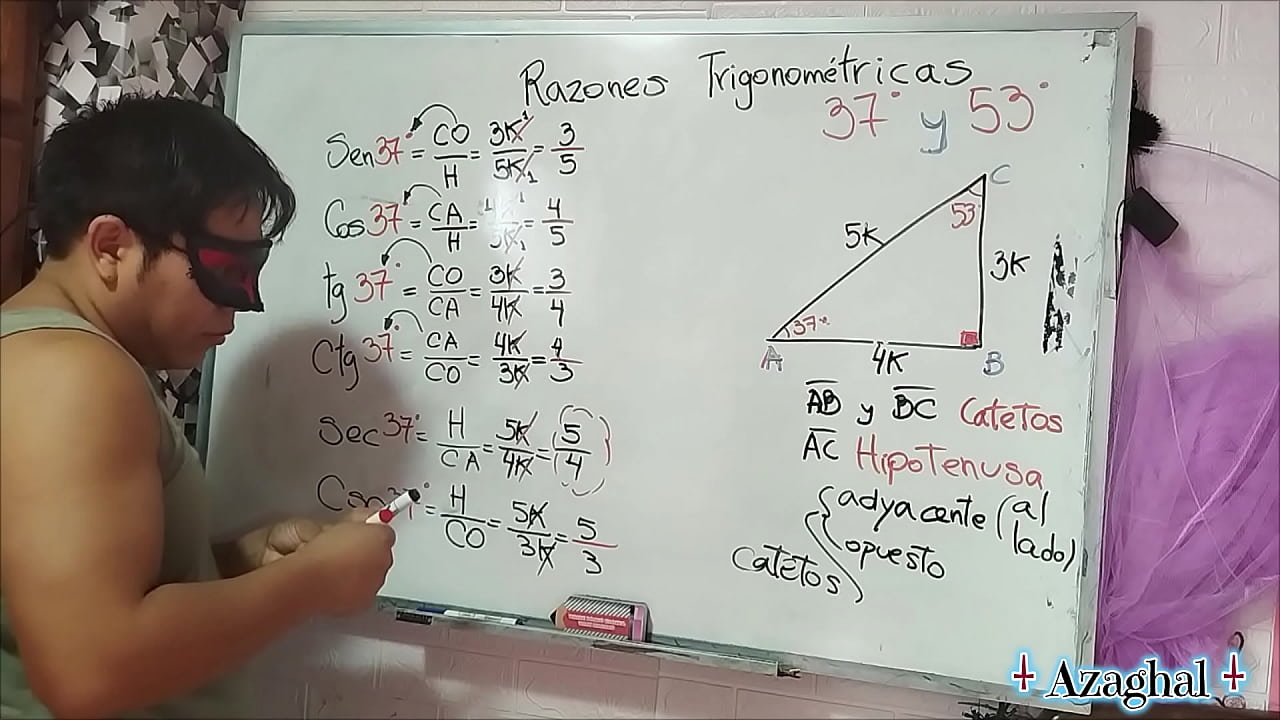 Razones Trigonométricas
37° y 53°
Sen 37° = CO/H = 3K/5K = 3/5
Cos 37° = CA/H = = 4/5
tg 37° = CO/CA = 3K/4K = 3/4
Ctg 37° = CA/CO = 4K/3K = 4/3
Sec 37° = H/CA = 5K/4K = 5/4
= H/CO = 5K/3K = 5/3
C
53
5K
3K
37°
A
4K
B
AB y BC Catetos
AC Hipotenusa
Catetos
adyacente (al lado)
opuesto
Azaghal